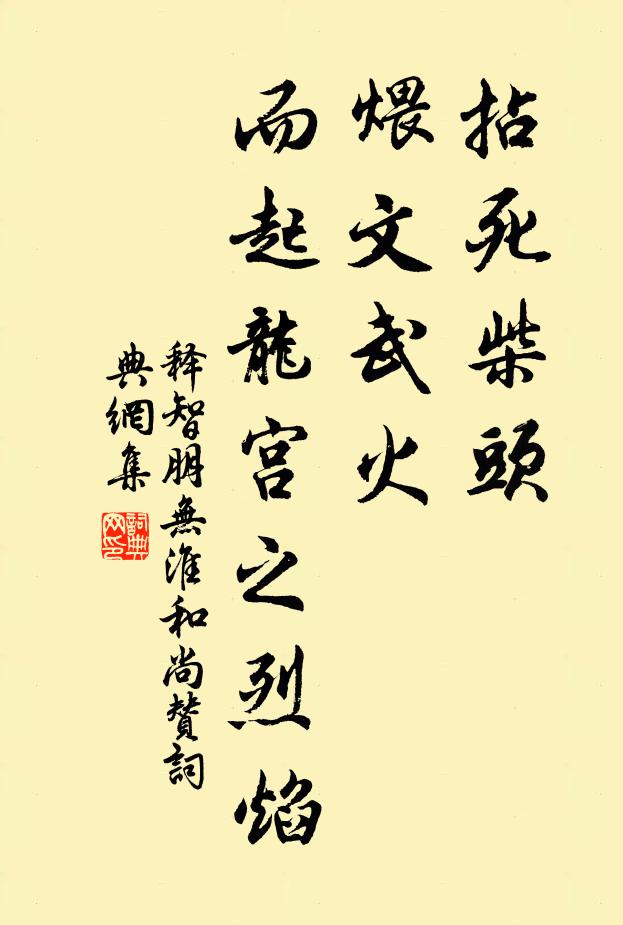 拈死柴頭
煨文武火
而起龍宫之烈焰
释智朋無準和尚贊詞
典網集
詞典
网印